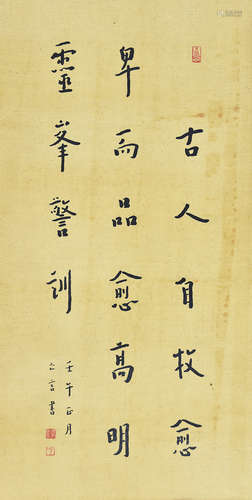 古人自牧愈
卑而品愈高明
靈峯警訓
壬午正月
亡言書